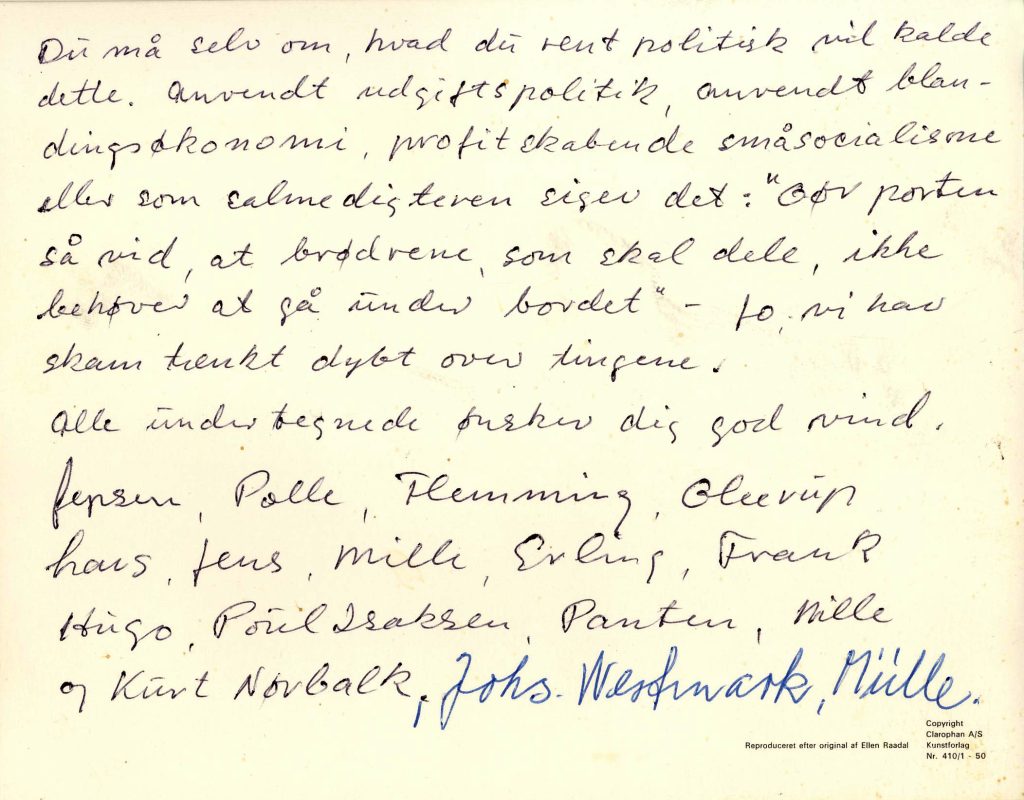 Du må selv om, hvad du rent politisk vil kalde
dette. Anvendt udgiftspolitik, anvendt blan-
dingsøkonomi, profitskabende småsocialisme
eller som salmedigteren siger det: "Gør porten
så vid, at brødrene, som skal dele, ikke
behøver at gå under bordet" - Jo, vi har
skam tænkt dybt over tingene.
Alle undertegnede ønsker dig god vind.
Jepsen, Palle, Flemming, Gleerup
hans, Jens, Mille, Erling, Frank
Hugo, Poul Isaksen, Panten, Mille
og Kurt Norbalk, Johs. Westmark, Mülle.
Reproduceret efter original af Ellen Raadal
Copyright
Clarophan A/S
Kunstforlag
Nr. 410/1 - 50